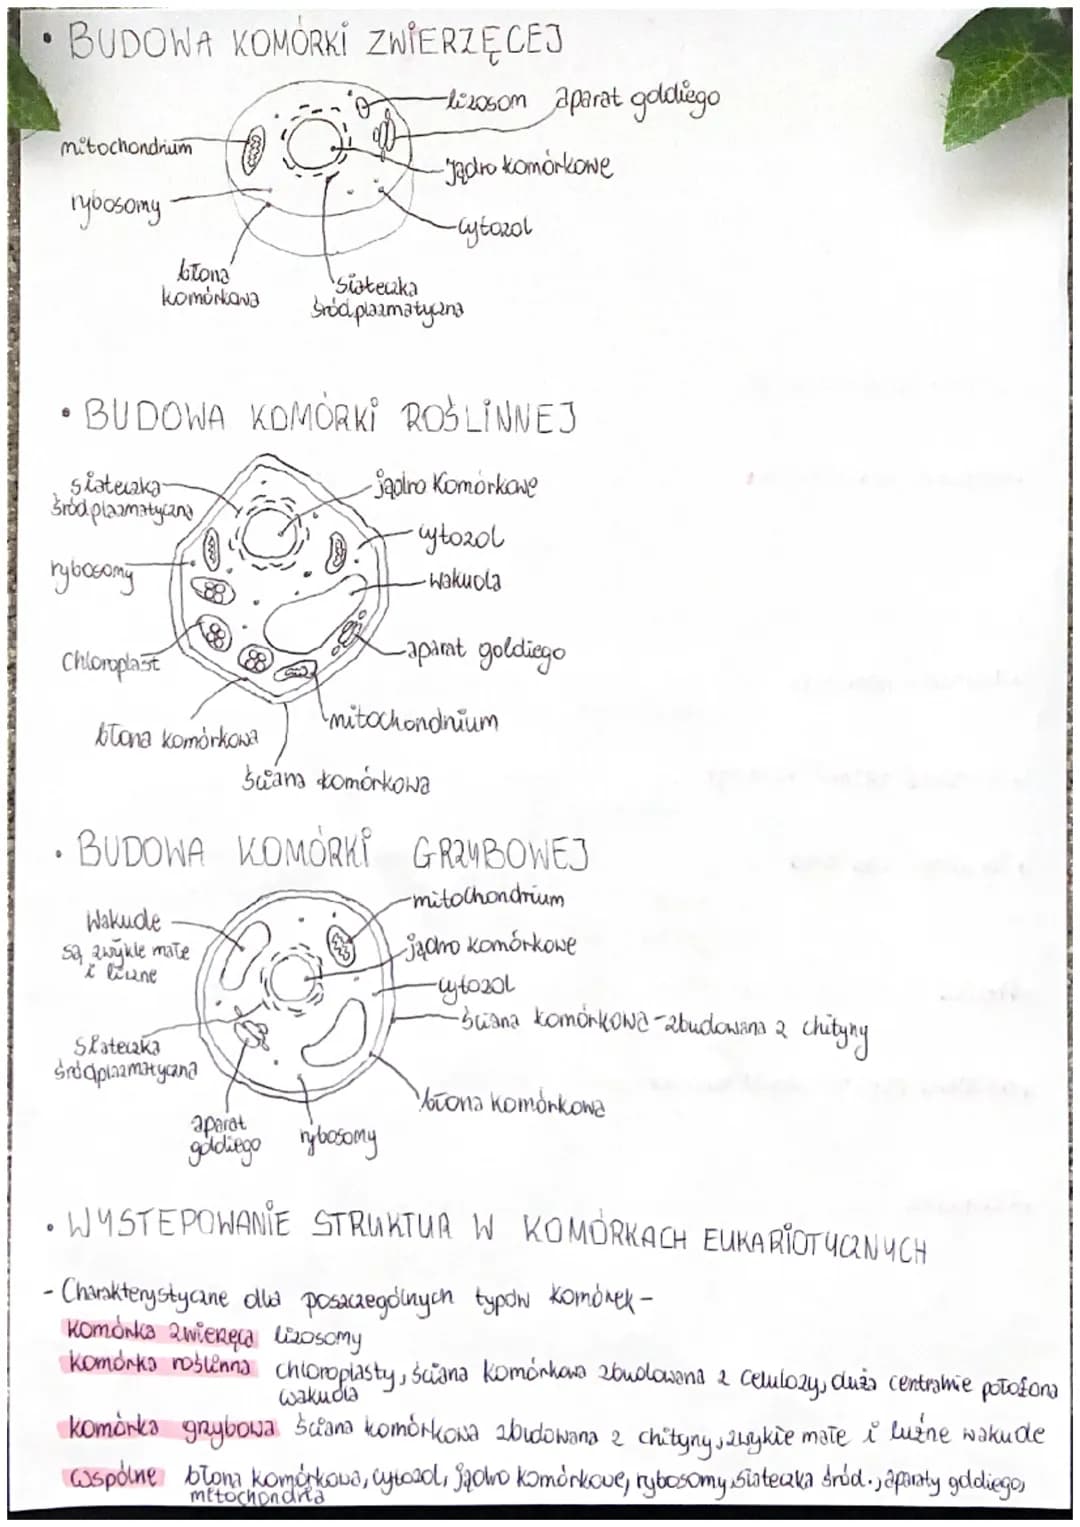 • BUDOWA KOMÓRKI ZWIERZĘCEJ
lizosom
aparat goldiego
mitochondrium
jądro komórkowe
rybosomy
cytozol
błona
komórkowa
siateczka
śródplazmatyczna
• BUDOWA KOMÓRKI ROŚLINNEJ
siateczka
śródplazmatyczna
jądro komórkowe
cytozol
rybosomy
wakuola
Chloroplast
aparat goldiego
mitochondrium
błona komórkowa
ściana komórkowa
• BUDOWA KOMÓRKI GRZYBOWEJ
mitochondrium
Wakuole
są zwykle małe
i liczne
jądro komórkowe
cytozol
ściana komórkowa - zbudowana z chityny
Siateczka
śródplazmatyczna
błona komórkowa
aparat
goldiego
rybosomy
• WYSTEPOWANIE STRUKTUR W KOMÓRKACH EUKARIOTYCZNYCH
- Charakterystyczne dla poszczególnych typów komórek -
komórka zwierzęca lizosomy
komórka roślinna chloroplasty, ściana komórkowa zbudowana z celulozy, duża centralnie położona
wakuola
komórka grzybowa ściana komórkowa zbudowana z chityny, zwykle małe i luźne wakuole
wspólne błona komórkowa, cytozol, jądro komórkowe, rybosomy, siateczka śród., aparaty goldiego,
mitochondria